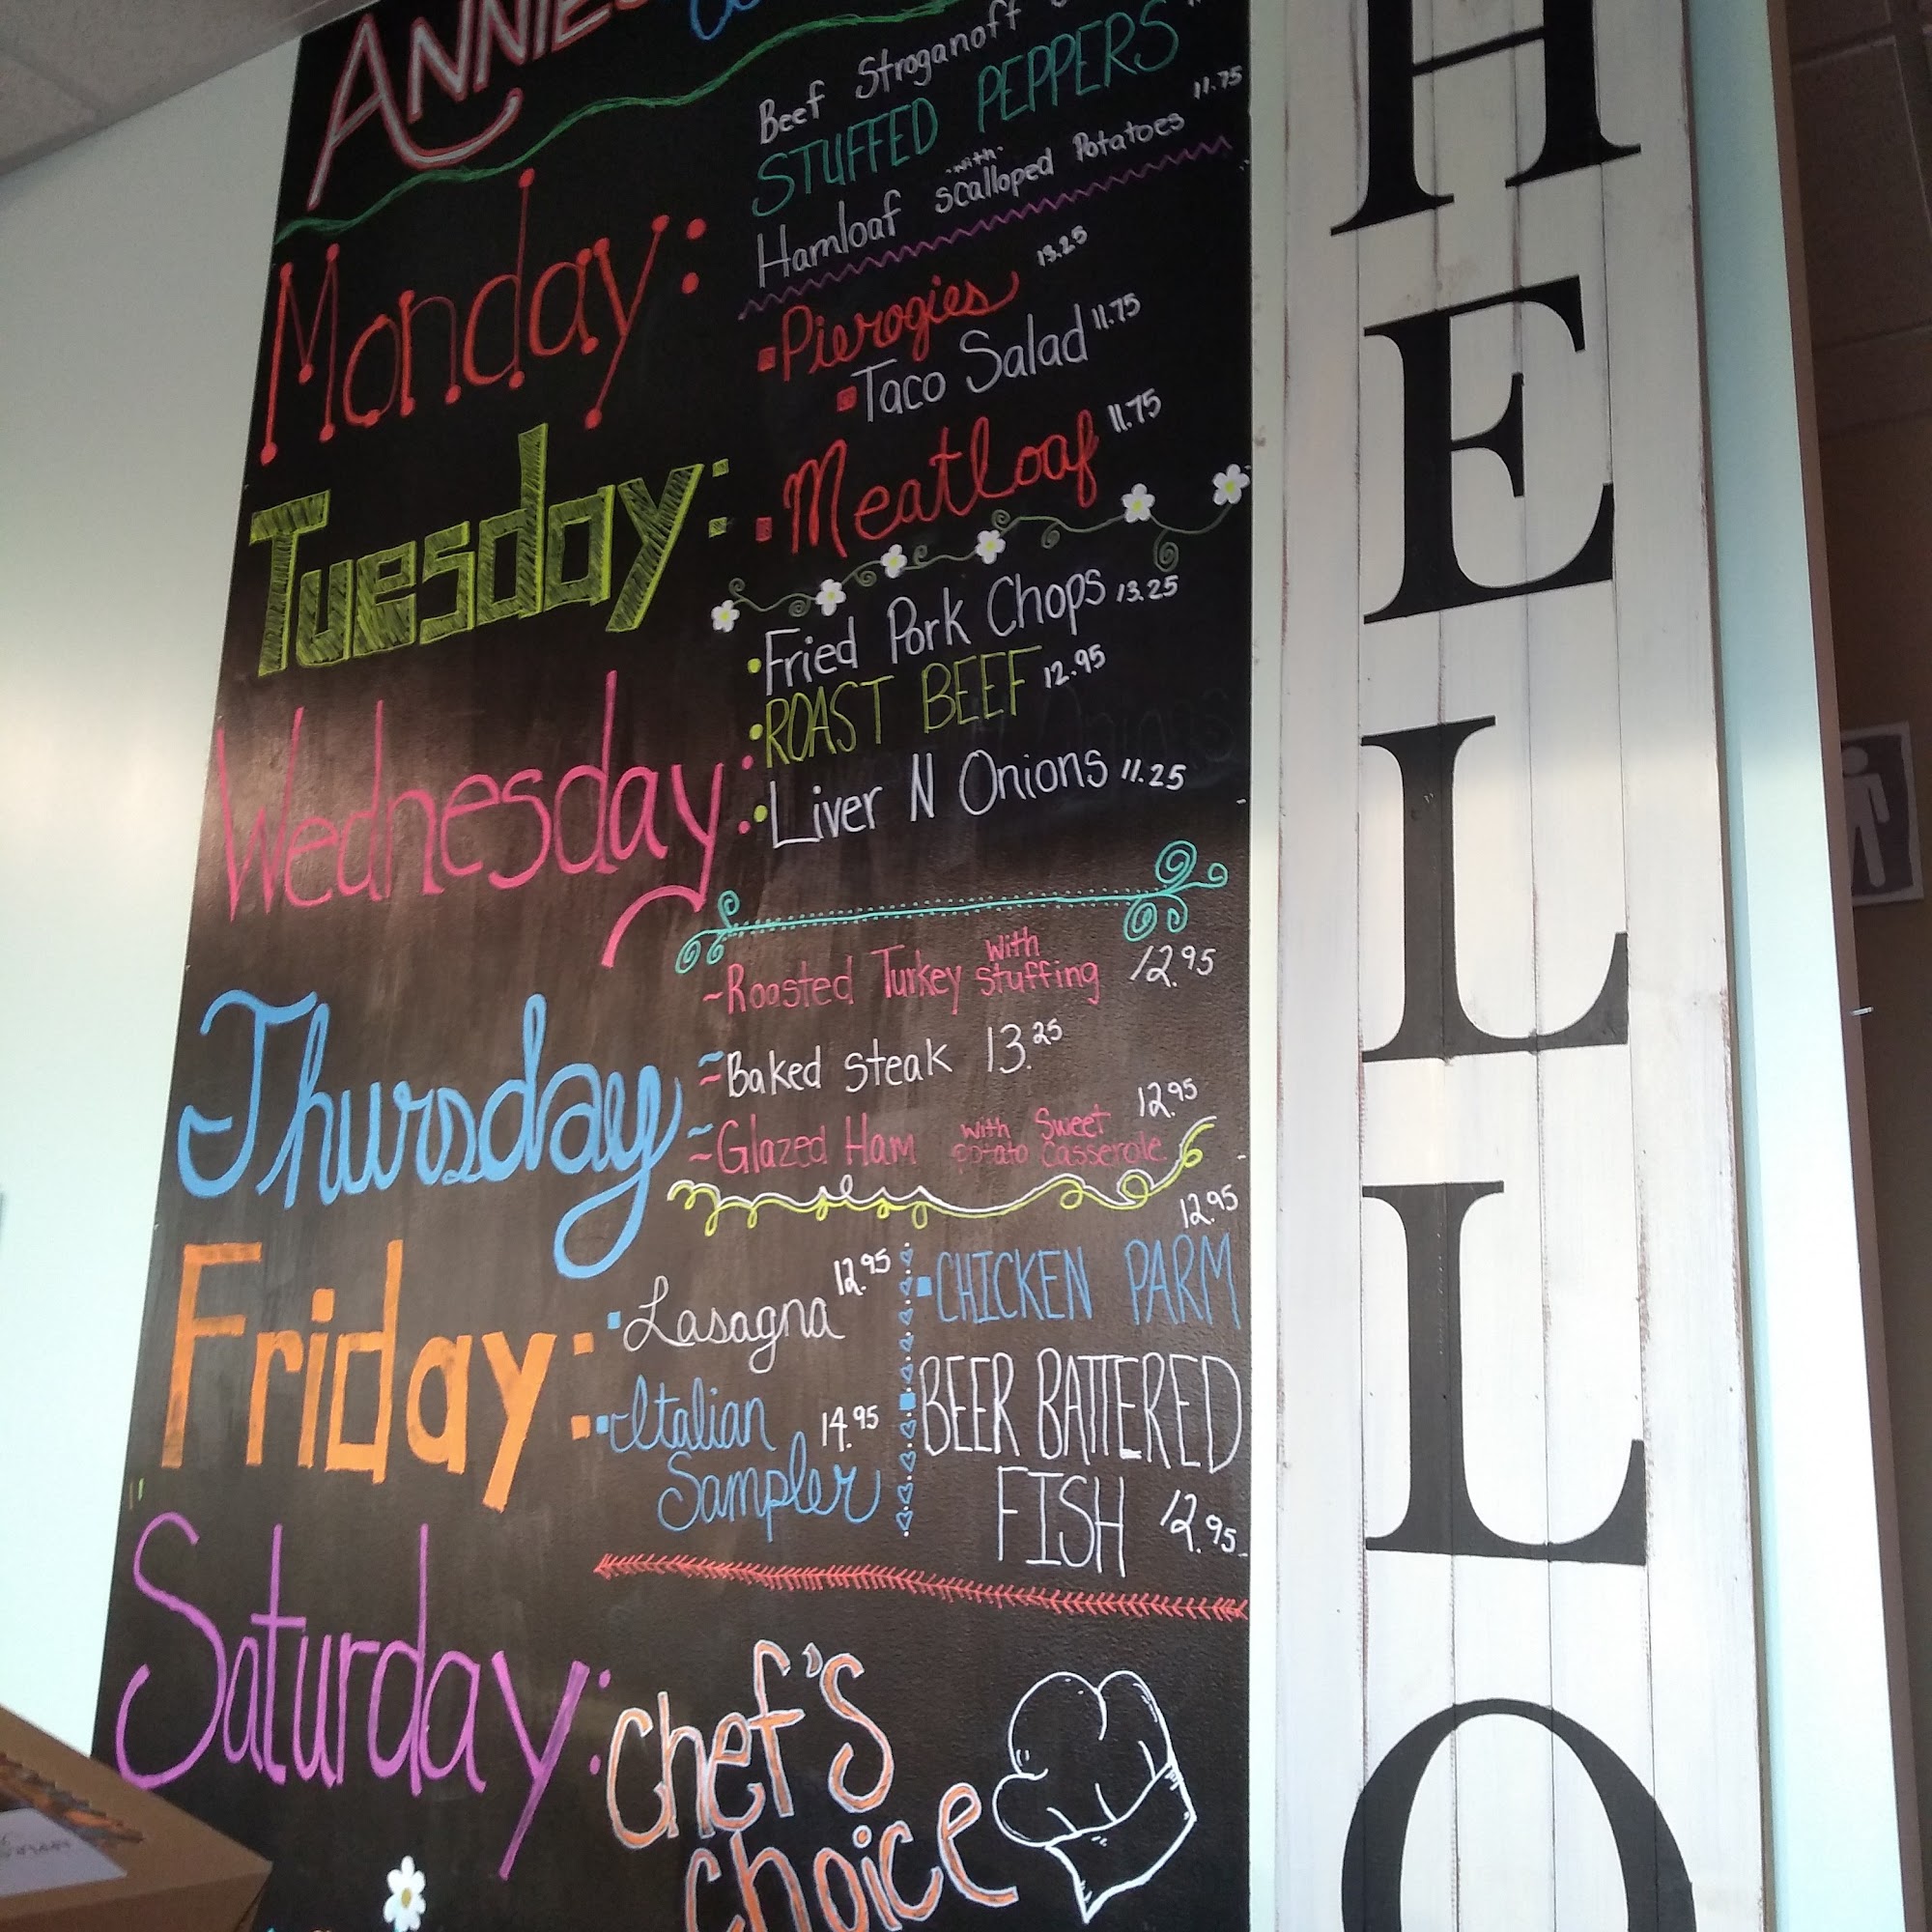 ANNIE'S
Monday:
Beef Stroganoff
STUFFED PEPPERS
Hamloaf with scalloped Potatoes 11.75
Tuesday:
Pierogies 13.25
Taco Salad 11.75
Meatloaf 11.75
Wednesday:
Fried Pork Chops 13.25
ROAST BEEF 12.95
Liver N Onions 11.25
Thursday
~Roasted Turkey with stuffing 12.95
Baked steak 13.25
Glazed Ham with Sweet potato casserole 12.95
Friday:
Lasagna 12.95
Italian Sampler 14.95
CHICKEN PARM 12.95
BEER BATTERED
FISH 12.95
Saturday:
Chef's
choice
HELLO